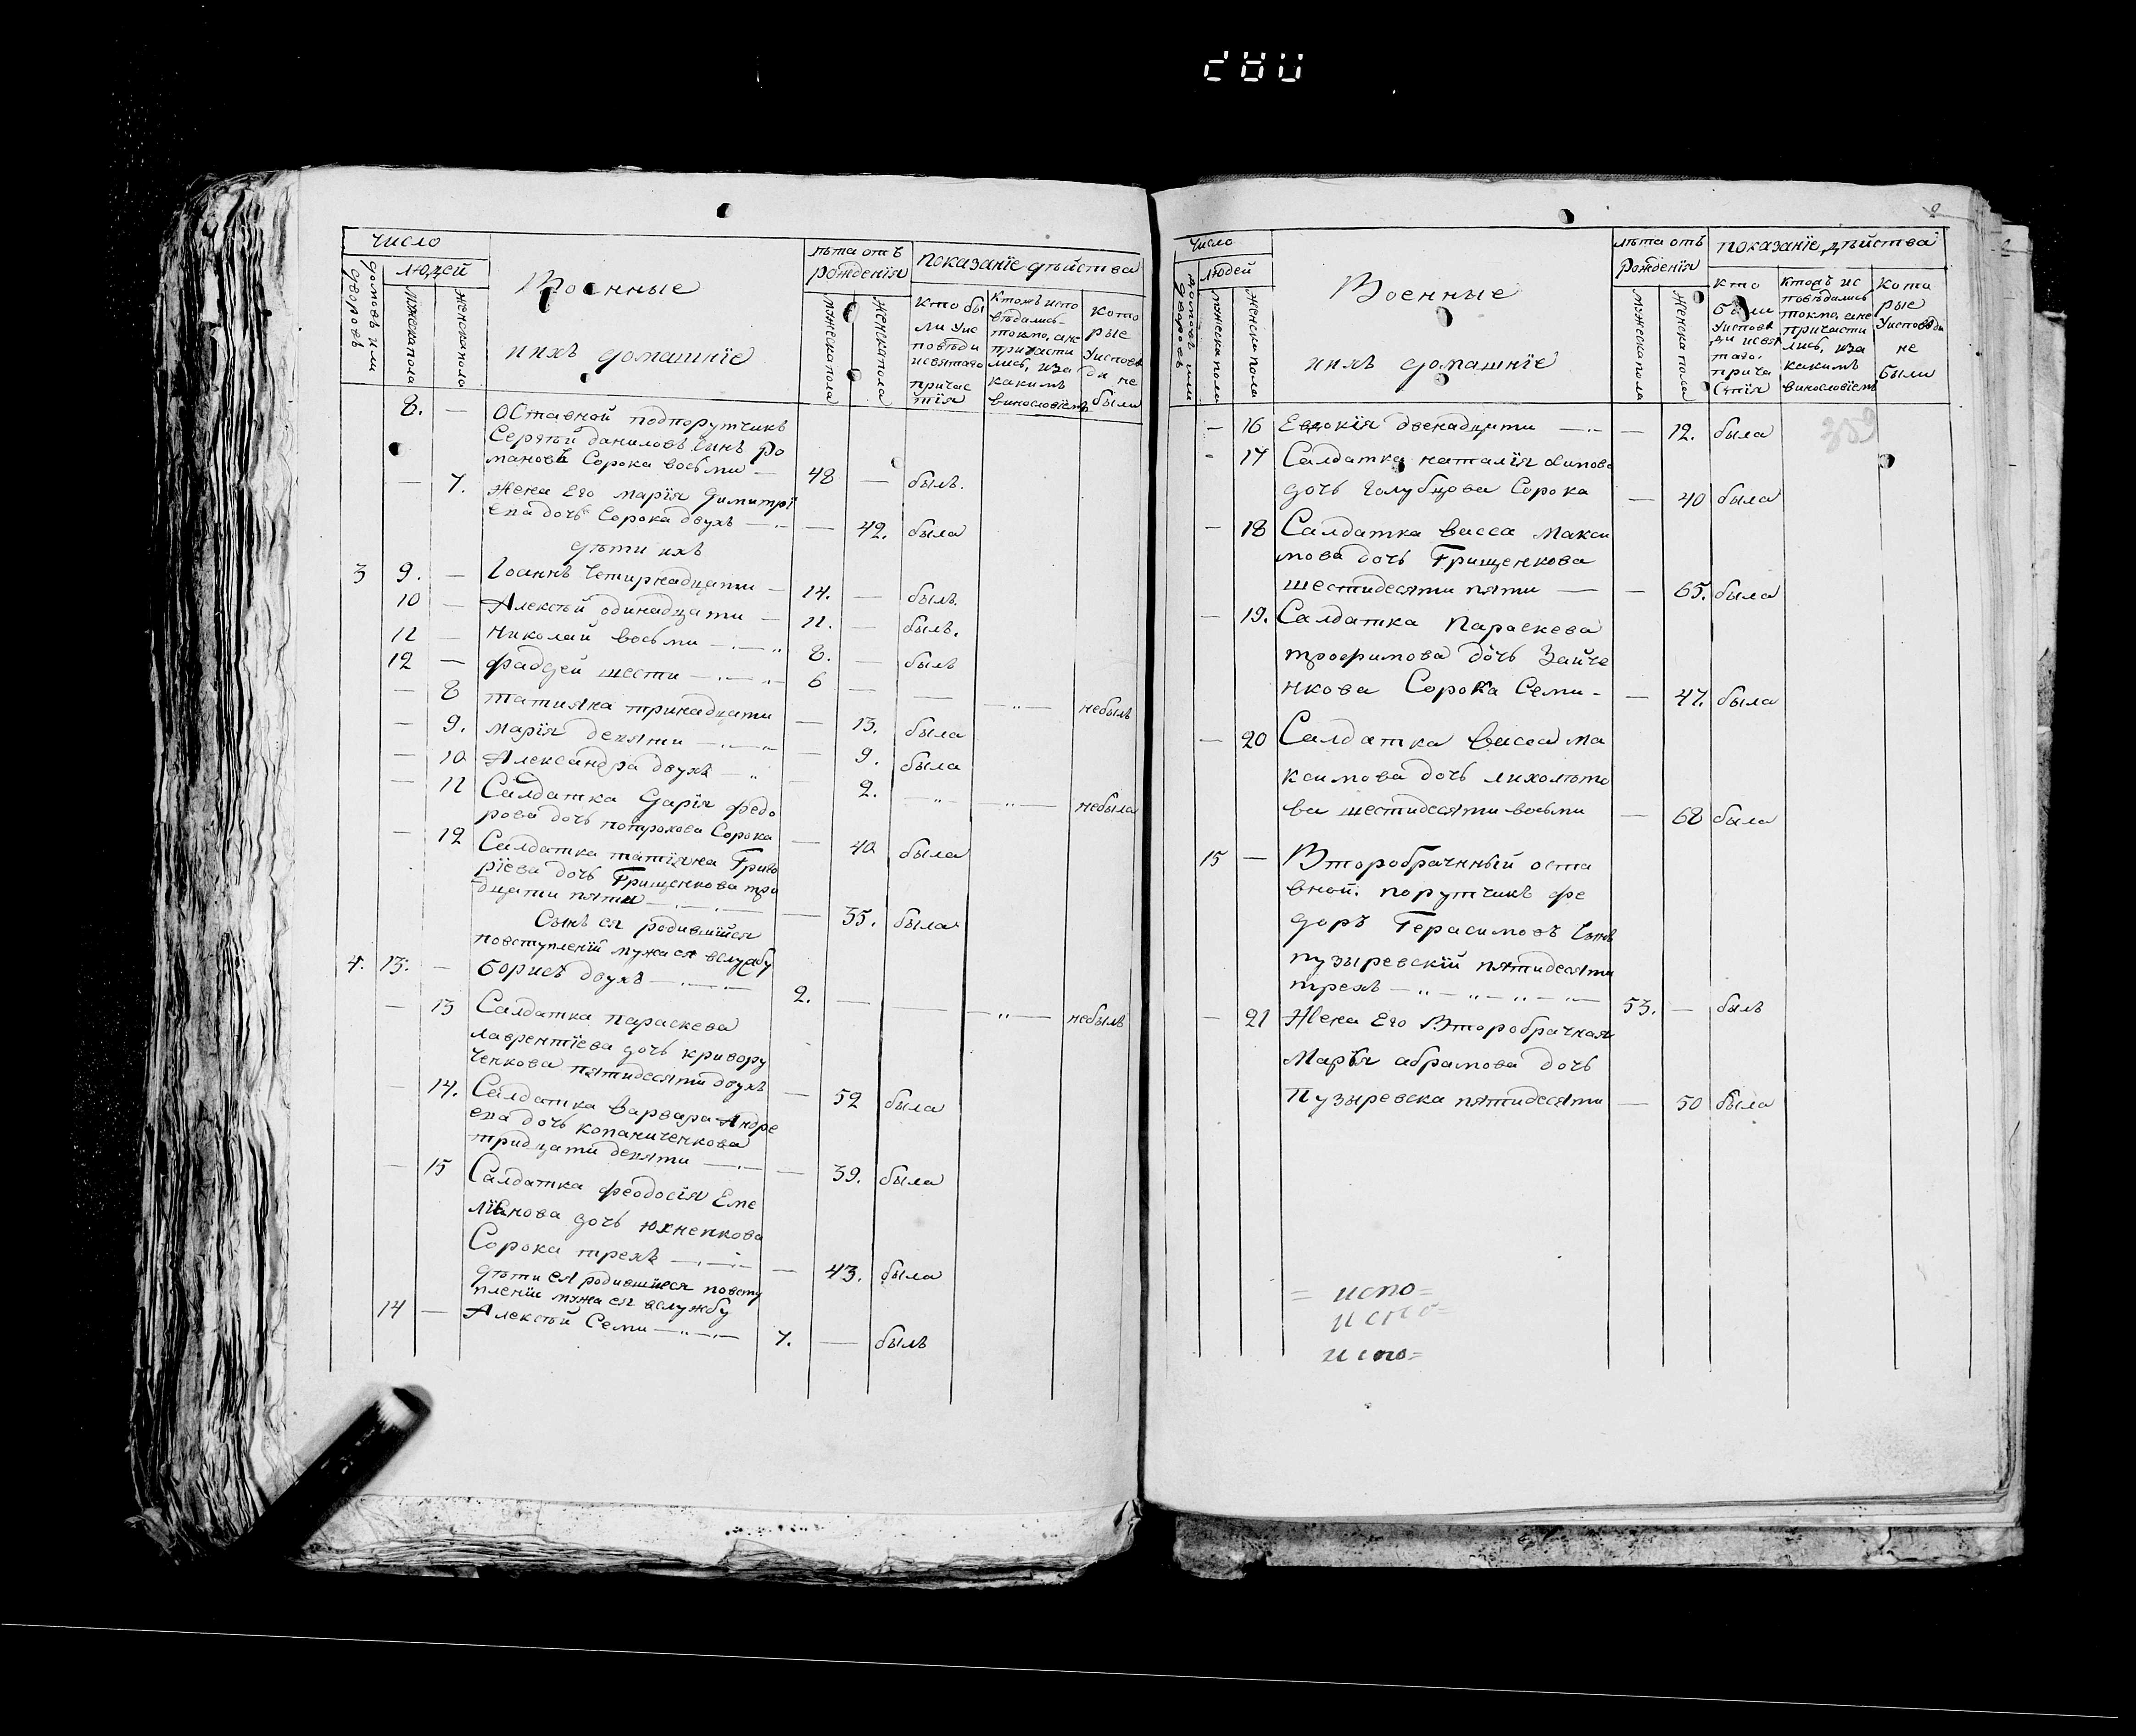 число
людей
домовъ или дворовъ
мужеска пола
женска пола
Военные
ихъ домашнїе
лѣта отъ рожденїя
мужеска пола
женска пола
показанїе дѣйства
кто бы
ли уис
повѣди
исвятаго
причас
тїя
Ктожъ испо
вѣдались
токмо, ане
причасти
лись, иза
какимъ
винословїемъ
кото
рые
уиспове
ди не
были
8. — Оставной подпорутчикъ
Сергѣй даниловъ сынъ Ро
мановъ Сорока восьми — 48 — былъ.
— 7. Жена Его марїя Димитрї
ева дочь Сорока двухъ — — 42. была
дѣти ихъ
3 9. — Іоаннъ четирнадцати — 14. — былъ.
10 — Алексѣй одинадцати — 11. — былъ.
11 — Николай восьми — 8. — былъ
12 — фаддей шести — 6 — — — небылъ
— 8 татияна тринадцати — 13. была
— 9. марїя девяти — — 9. была
— 10 Александра двухъ — — 2. — — небыла
— 11 Салдатка Дарїя федо
рова дочь потрохова Сорока — 40 была
— 12 Салдатка татїяна Григо
рїева дочь Грищенкова три
дцати пяти — — 35. была
Сынъ ея родившїйся
повступленїй мужа ея вслужбу
4. 13. — борисъ двухъ — 2. — — — небылъ
— 13 Салдатка параскева
лаврентїева дочь кривору
ченкова пятидесяти двухъ — 52 была
— 14. Салдатка варвара Андре
ева дочь копаниченкова
тридцати девяти — — 39. была
— 15 Салдатка феодосїя Еме
лїянова дочь юхненкова
Сорока трехъ — — 43. была
дѣти ея родившїеся повсту
пленїи мужа ея вслужбу
14 — Алексѣй Семи — 7. — былъ
2
число
людей
домовъ или дворовъ
мужеска пола
женска пола
Военные
ихъ домашнїе
лѣта отъ
рожденїя
мужеска пола
женска пола
показанїе дѣйства
кто
были
уиспове
ди исвя
таго
прича
стїя
ктожъ ис
повѣдались
токмо, ане
причасти
лись, иза
какимъ
винословїемъ
кото
рые
уисповѣди
не
были
— 16 Евдокїя двенадцати — — 12. была
- 17 Салдатка наталїя
дочь голубцова Сорока — 40 была
— 18 Салдатка васса макси
мова дочь Грищенкова
шестидесяти пяти — — 65. была
— 19. Салдатка Параскева
трофимова дочь Зайче
нкова Сорока Семи - — 47. была
— 20 Салдатка васса ма
ксимова дочь лихолѣто
ва шестидесяти восьми — 68 была
15 — Второбрачный оста
вной порутчикъ фе
доръ Герасимовъ Сынъ
пузыревскїй пятидесяти
трехъ — 53. — былъ
— 21 Жена Его Второбрачная
Марья абрамова дочь
Пузыревска пятидесяти — 50 была
= испо=
испо=
испо=